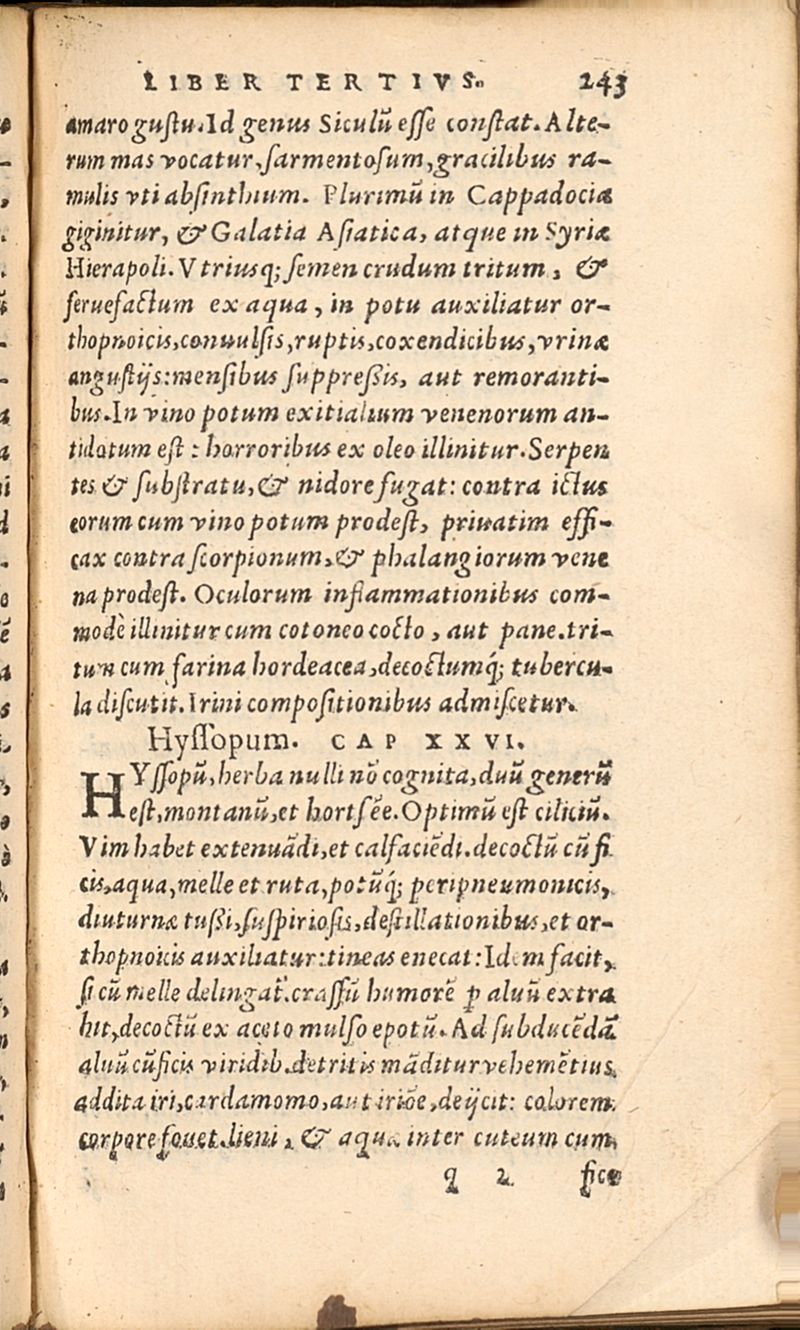 LIBER TERTIVS. 243
amaro gustu. Id genus Siculū esse constat. Alte-
rum mas vocatur, sarmentosum, gracilibus ra-
mulis vti absinthium. Plurimū in Cappadocia
giginitur, & Galatia Asiatica, atque in Syriæ
Hierapoli. Vtriusq; semen crudum tritum, &
feruefactum ex aqua, in potu auxiliatur or-
thopnoicis, conuulsis, ruptis, coxendicibus, vrinæ
angustijs: mensibus suppressis, aut remoranti-
bus. In vino potum exitialium venenorum an-
tidotum est: horroribus ex oleo illinitur. Serpen
tes & substratu, & nidore fugat: contra ictus
eorum cum vino potum prodest, priuatim effi-
cax contra scorpionum, & phalangiorum vene
na prodest. Oculorum inflammationibus com-
modè illinitur cum cotoneo cocto, aut pane. tri-
tum cum farina hordeacea, decoctumq́; tubercu-
la discutit. Irini compositionibus admiscetur.
Hyssopum. CAP XXVI.
HYssopū, herba nulli nō cognita, duū generū
est, montanū, et hortēse. Optimū est ciliciū.
Vim habet extenuādi, et calfaciēdi. decoctū cū fi
cis, aqua, melle et ruta, potūq́; peripneumonicis,
diuturnæ tussi, suspiriosis, destillationibus, et or-
thopnoicis auxiliatur: tineas enecat: Idem facit,
si cū melle delingat̃. crassū humorē ꝑ aluū extra
hit, decoctū ex aceto mulso epotū. Ad subducēdā
aluū cū ficis viridib. detritis māditur vehemētius,
addita iri, cardamomo, aut iriōe, deijcit: colorem
corpore fouet. lieni, & aquæ inter cuteum cum
q 2 fico